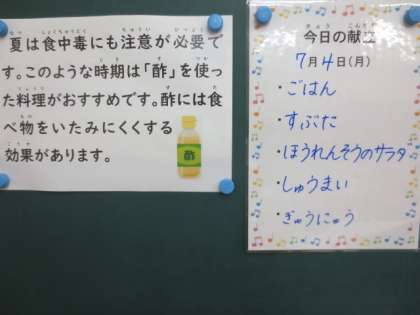 夏は食中毒にも注意が必要で
す。このような時期は「酢」を使っ
た料理がおすすめです。酢には食
べ物をいたみにくくする
効果があります。
酢
今日の献立
7月4日(月)
・ごはん
・すぶた
・ほうれんそうのサラダ
・しゅうまい
・ぎゅうにゅう